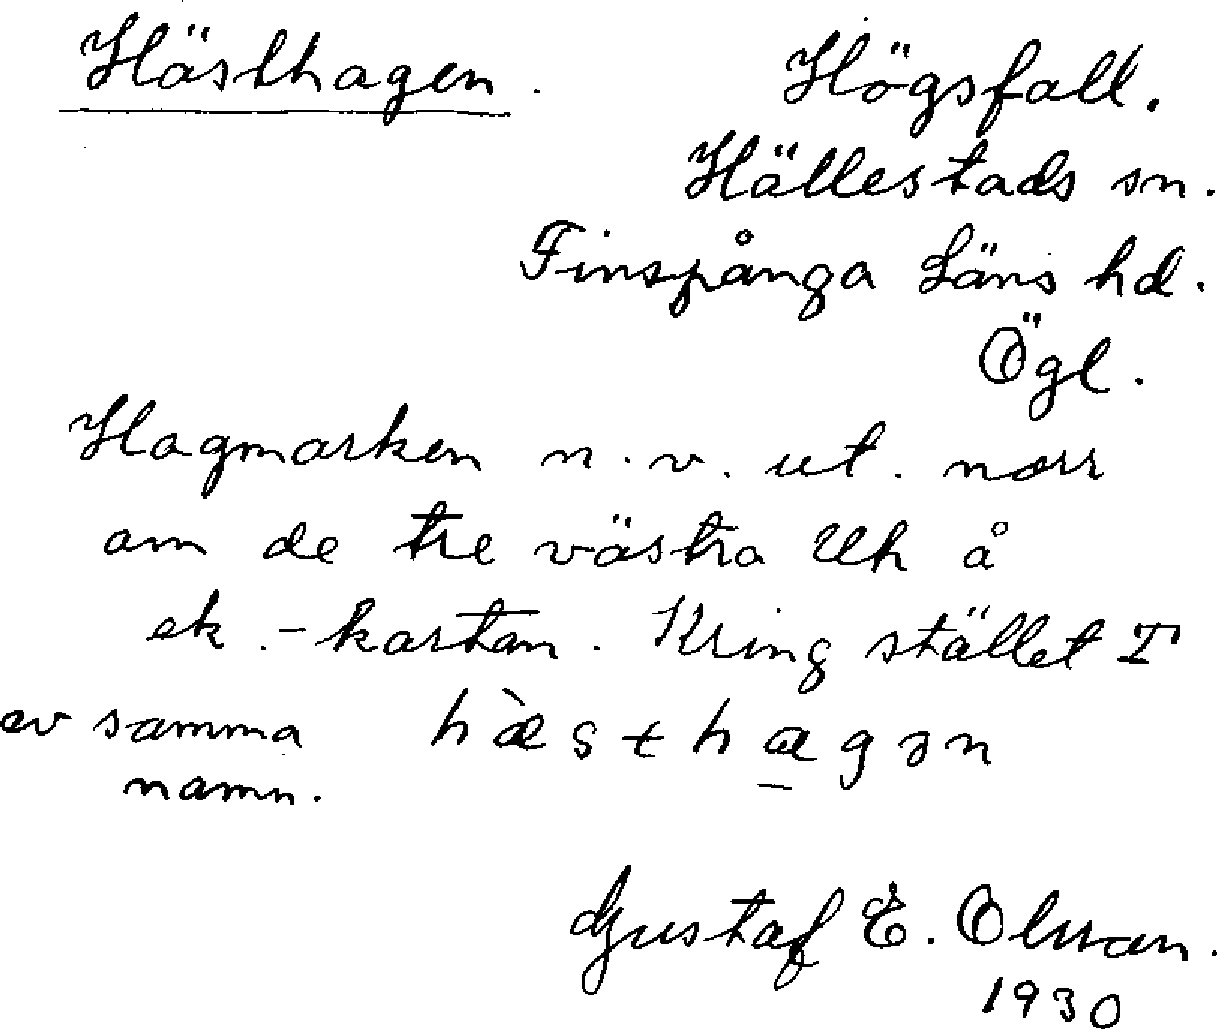 Hästhagen.
Högsfall.
Hällestads sn.
Finspånga Läns hd.
Ögl.
Hagmarken n.v. ut. norr
om de tre västra Uh å
ek.-kartan. Kring stället T
av samma hæ̀sthagən
namn.
Gustaf E. Olsson.
1930